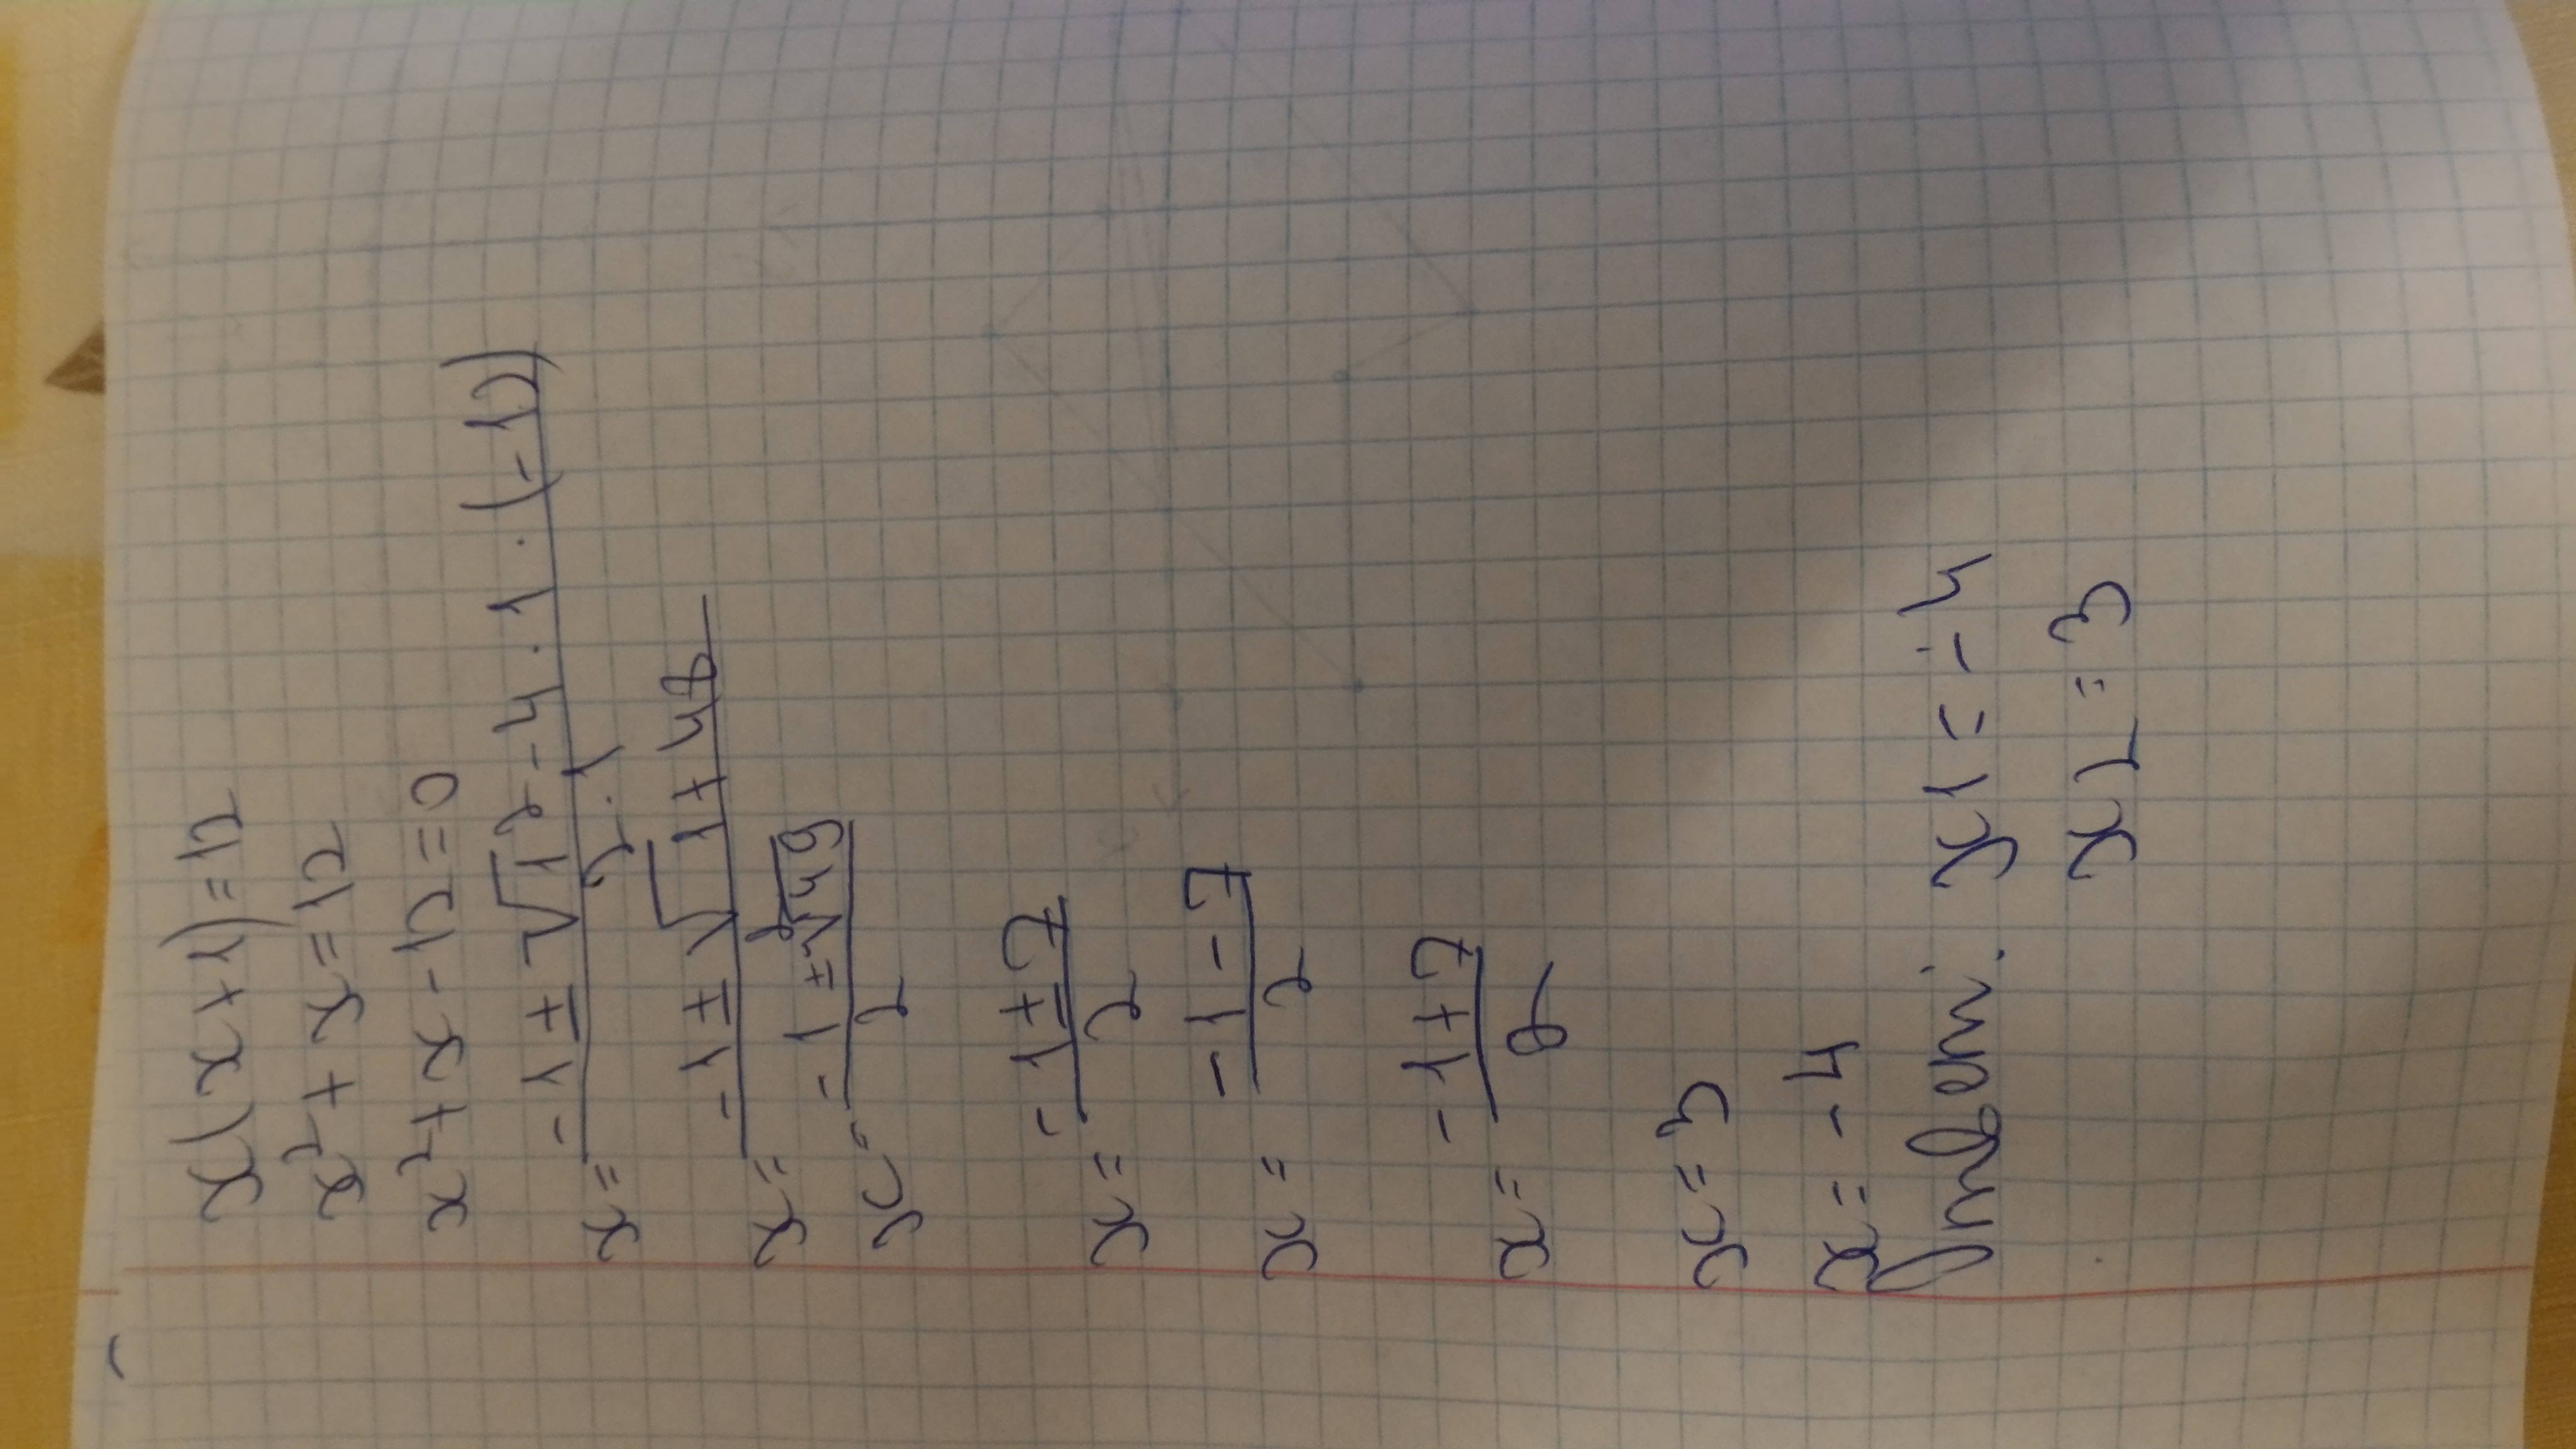 x(x+1)=12
x²+x=12
x²+x-12=0
x= -1±√1²-4·1·(-12) / 2·1
x= -1±√1+48 / 2
x= -1±√49 / 2
x= -1±7 / 2
x= -1-7 / 2
x= -1+7 / 2
x=3
x=-4
Ответ: x1=-4
x2=3